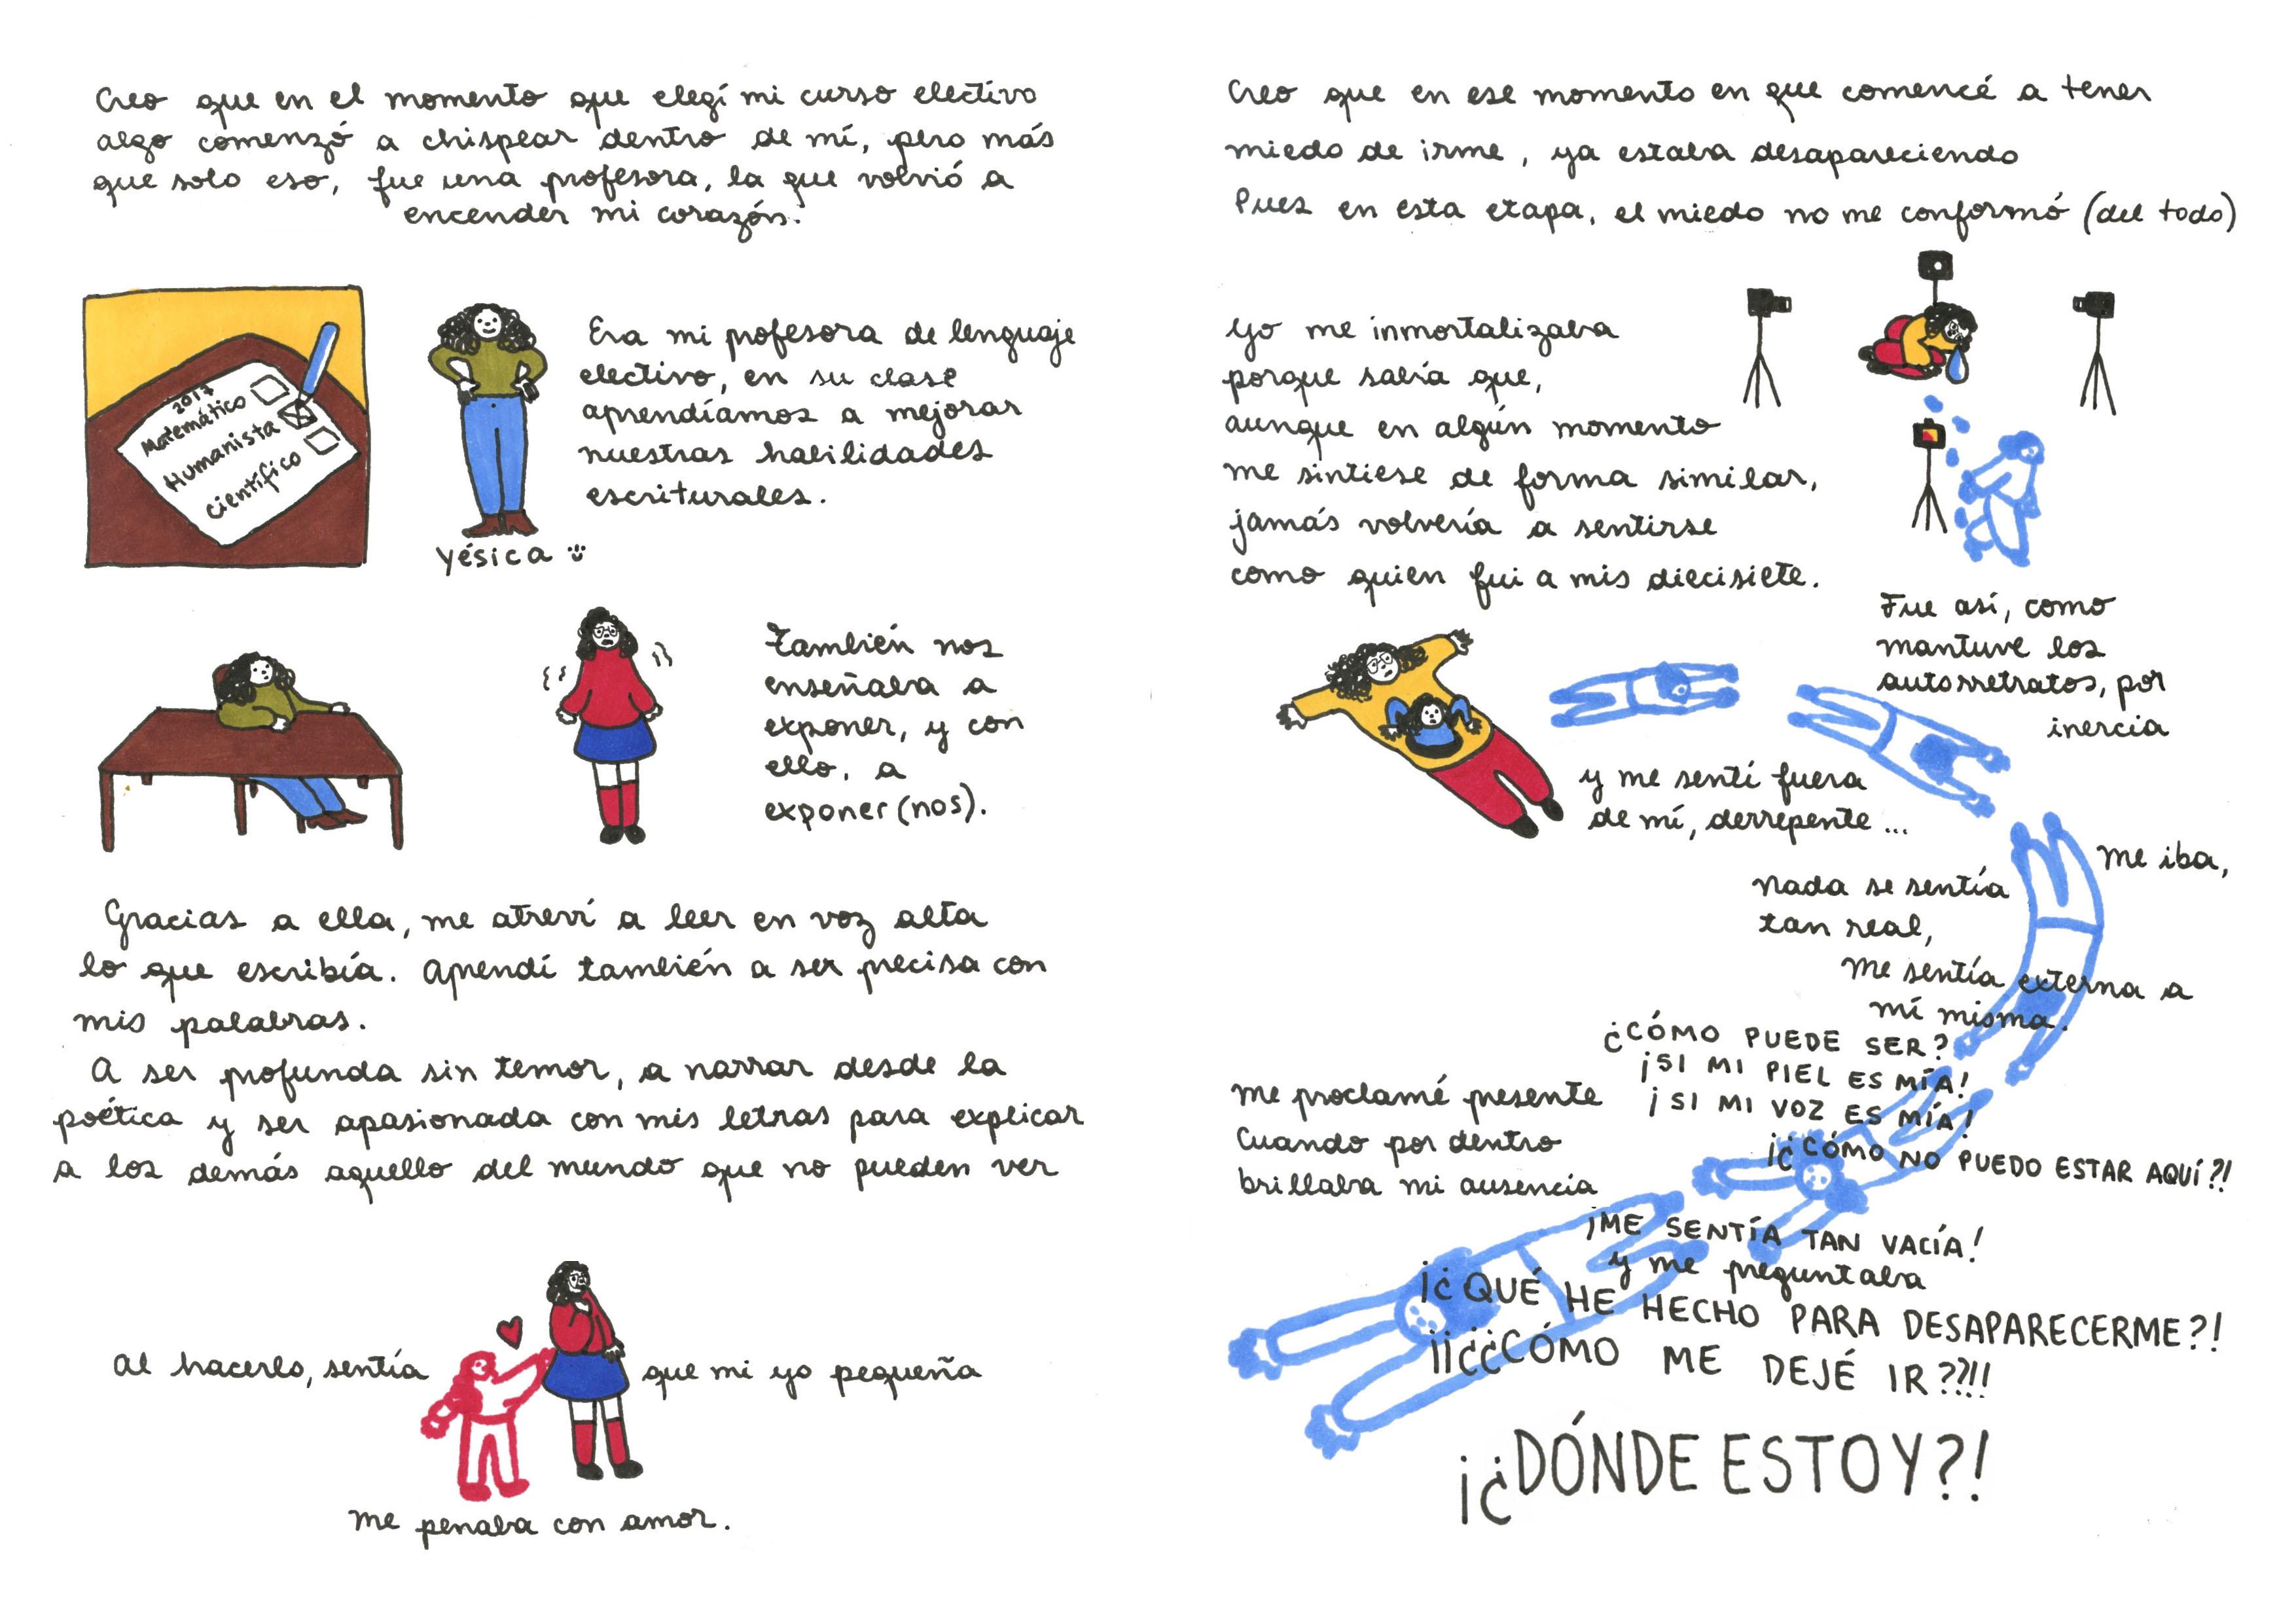 Creo que en el momento que elegí mi curso electivo
algo comenzó a chispear dentro de mí, pero más
que solo eso, fue una profesora, la que volvió a
encender mi corazón.
2017
Matemático
Humanista
Científico
Yésica
Era mi profesora de lenguaje
electivo, en su clase
aprendíamos a mejorar
nuestras habilidades
escriturales.
También nos
enseñaba a
exponer, y con
ello, a
exponer(nos).
Gracias a ella, me atreví a leer en voz alta
lo que escribía. Aprendí también a ser precisa con
mis palabras.
A ser profunda sin temor, a narrar desde la
poética y ser apasionada con mis letras para explicar
a los demás aquello del mundo que no pueden ver
Al hacerlo, sentía que mi yo pequeña
me penaba con amor.
Creo que en ese momento en que comencé a tener
miedo de irme, ya estaba desapareciendo
Pues en esta etapa, el miedo no me conformó (del todo)
Yo me inmortalizaba
porque sabía que,
aunque en algún momento
me sintiese de forma similar,
jamás volvería a sentirse
como quien fui a mis diecisiete.
Fue así, como
mantuve los
autorretratos, por
inercia
y me sentí fuera
de mí, derrepente...
Me iba,
nada se sentía
tan real,
Me sentía externa a
mí misma.
¿CÓMO PUEDE SER?
¡SI MI PIEL ES MÍA!
¡SI MI VOZ ES MÍA!
¡¿CÓMO NO PUEDO ESTAR AQUÍ?!
me proclamé presente
Cuando por dentro
brillaba mi ausencia
¡ME SENTÍA TAN VACÍA!
y me preguntaba
¡¿QUÉ HE HECHO PARA DESAPARECERME?!
¡¡¿¿¿CÓMO ME DEJÉ IR???!!
¡¿DÓNDE ESTOY?!